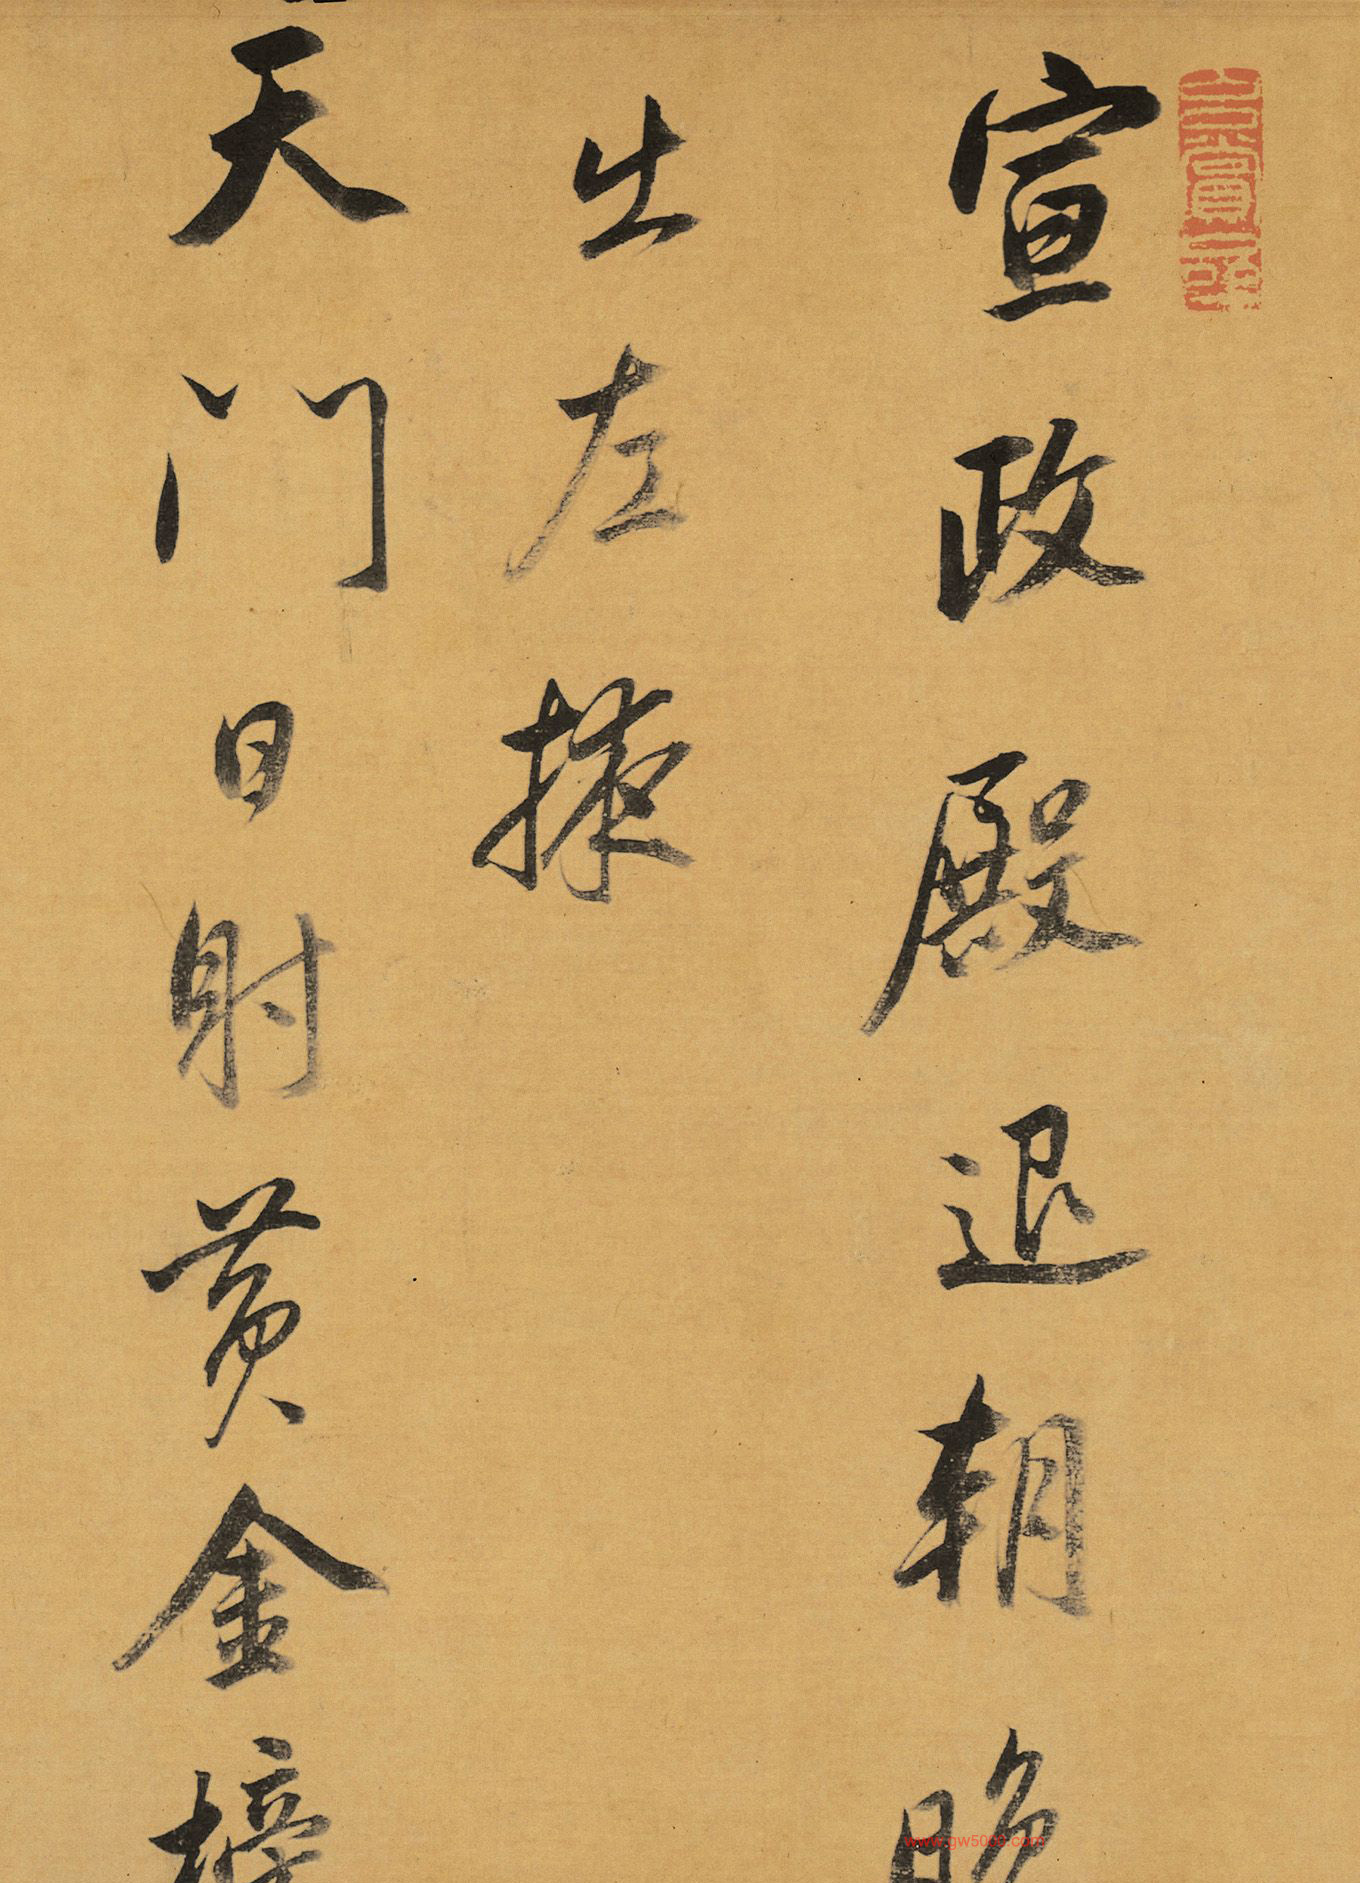 宣政殿退朝晚
出左掖
天門日射黃金榜
www.gw5000.com